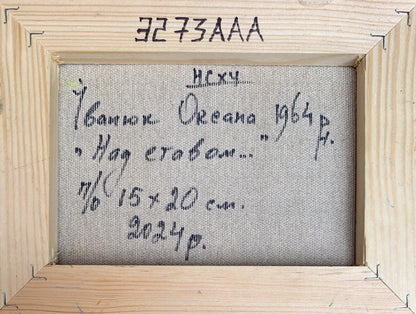 Э273ААА
НСХУ
Іванюк Оксана 1964 р.н.
"Над ставом..."
п/о 15×20 см.
2024 р.